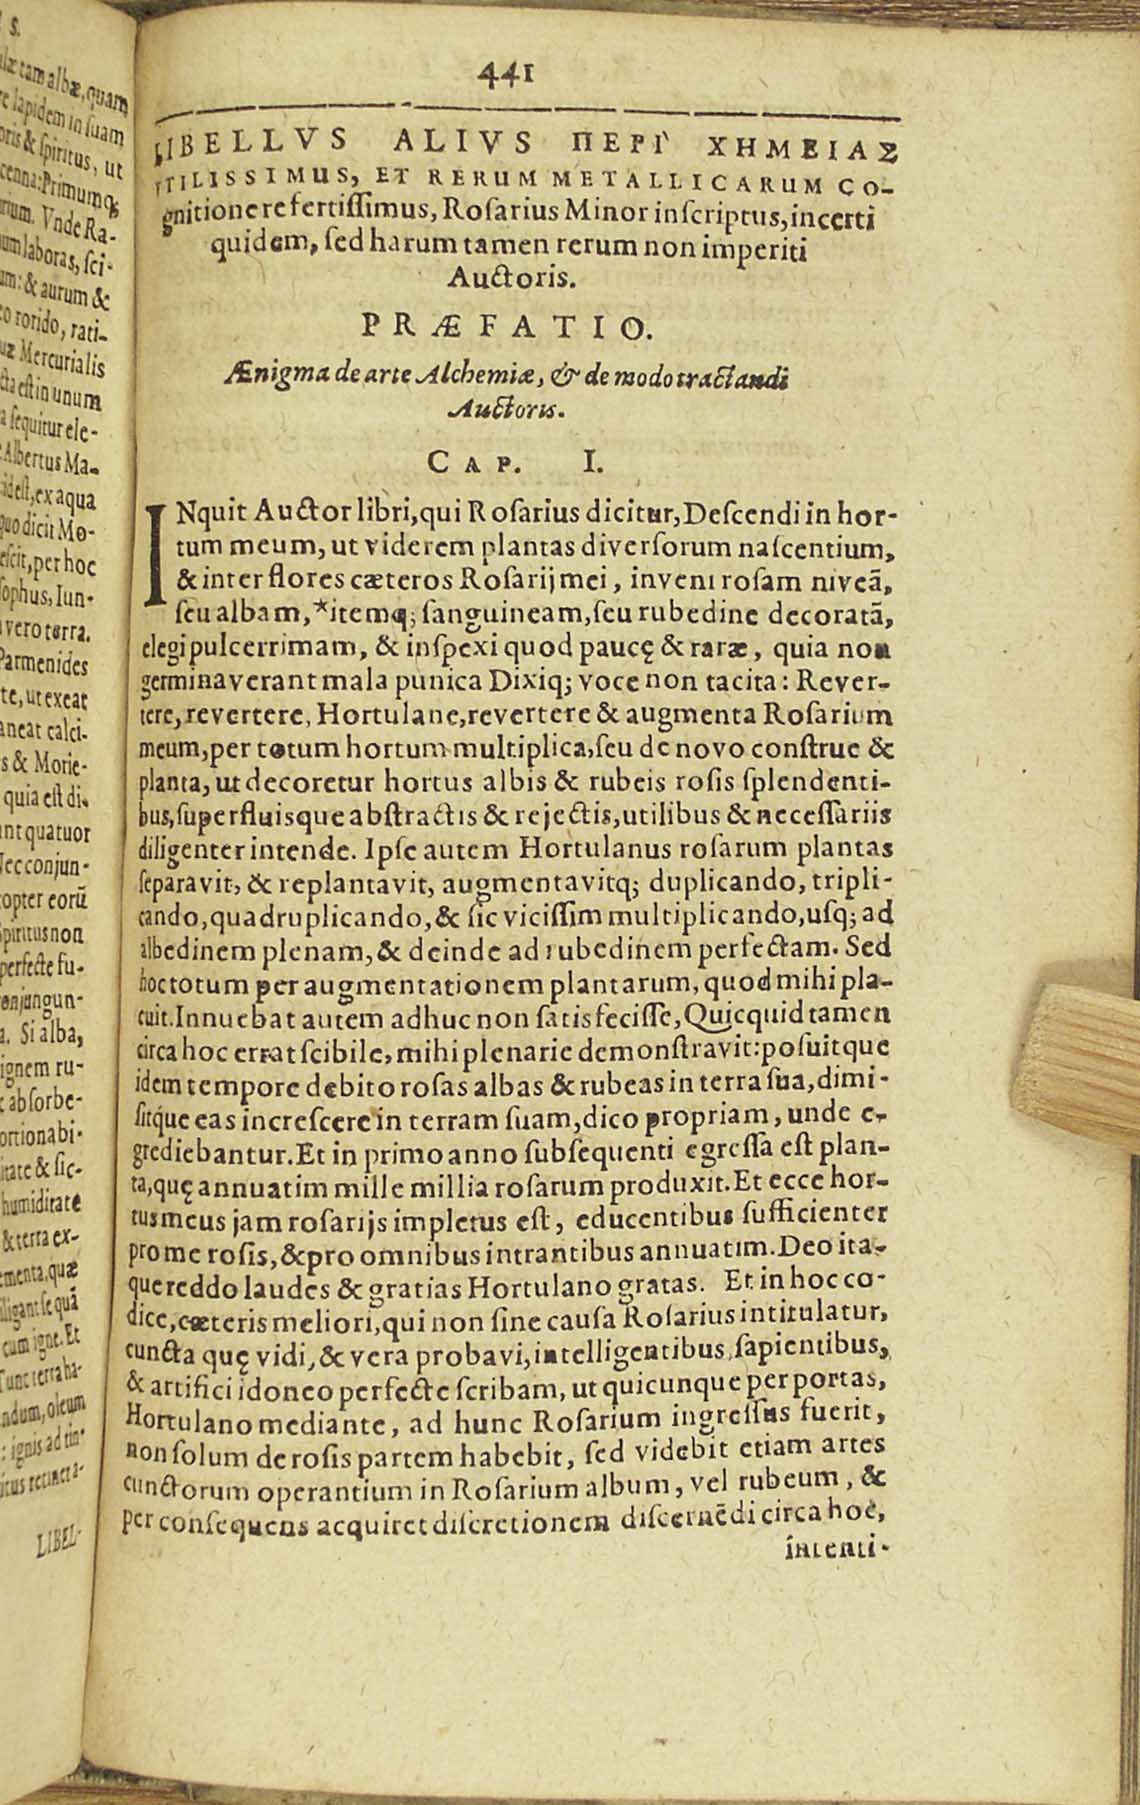 S.
læ tam albæ, quam
re lapidem in ſuam
oris & ſpiritus, ut
cenna: Primumq;
rium. Vnde Ra-
um laboras, ſci-
um: & aurum &
co rorido, rati-
uæ Mercurialis
cta eſt in unum
a ſequitur ele-
Albertus Ma-
ideſt, ex aqua
quo dicit Mo-
eſcit, per hoc
ſophus, Iun-
vero terra.
Parmenides
te, ut exeat
aneat calci-
s & Morie-
quia eſt di-
unt quatuor
Nec conjun-
opter eorū
Spiritus non
perfecte fu-
conjungun-
a. Si alba,
ignem ru-
abſorbe-
ortionabi-
itate & ſic-
humiditate
& terra ex-
ementa, quæ
iligant ſe quã
cum igne. Et
Tunc terra ha-
ndum, oleum
: ignis ad tin-
itus retinet a-
LIBEL-
441
LIBELLVS ALIVS ΠΕΡΙ` ΧΗΜΕΙΑΣ
VTILISSIMUS, ET RERUM METALLICARUM CO-
gnitione refertiſſimus, Roſarius Minor inſcriptus, incerti
quidem, ſed harum tamen rerum non imperiti
Auctoris.
PRÆFATIO.
Ænigma de arte Alchemiæ, & de modo tractandi
Auctoris.
CAP. I.
INquit Auctor libri, qui Roſarius dicitur, Deſcendi in hor-
tum meum, ut viderem plantas diverſorum naſcentium,
& inter flores cæteros Roſarij mei, inveni roſam niveã,
ſeu albam, *itemq; ſanguineam, ſeu rubedine decoratã,
elegi pulcerrimam, & inſpexi quod paucę & raræ, quia non
germinaverant mala punica Dixiq; voce non tacita: Rever-
tere, revertere, Hortulane, revertere & augmenta Roſarium
meum, per totum hortum multiplica, ſeu de novo conſtrue &
planta, ut decoretur hortus albis & rubeis roſis ſplendenti-
bus, ſuperfluisque abſtractis & rejectis, utilibus & neceſſariis
diligenter intende. Ipſe autem Hortulanus roſarum plantas
ſeparavit, & replantavit, augmentavitq; duplicando, tripli-
cando, quadruplicando, & ſic viciſſim multiplicando, uſq; ad
albedinem plenam, & deinde ad rubedinem perfectam. Sed
hoc totum per augmentationem plantarum, quod mihi pla-
cuit. Innuebat autem adhuc non ſatis feciſſe, Quicquid tamen
circa hoc errat ſcibile, mihi plenarie demonſtravit: poſuitque
idem tempore debito roſas albas & rubeas in terra ſua, dimi-
ſitque eas increſcere in terram ſuam, dico propriam, unde e-
grediebantur. Et in primo anno ſubſequenti egreſſa eſt plan-
ta, quę annuatim mille millia roſarum produxit. Et ecce hor-
tus meus jam roſarijs impletus eſt, educentibus ſufficienter
pro me roſis, & pro omnibus intrantibus annuatim. Deo ita-
que reddo laudes & gratias Hortulano gratas. Et in hoc co-
dice, cæteris meliori, qui non ſine cauſa Roſarius intitulatur,
cuncta quę vidi, & vera probavi, intelligentibus, ſapientibus,
& artifici idoneo perfecte ſcribam, ut quicunque per portas,
Hortulano mediante, ad hunc Roſarium ingreſſus fuerit,
non ſolum de roſis partem habebit, ſed videbit etiam artes
cunctorum operantium in Roſarium album, vel rubeum, &
per conſequens acquiret diſcretionem diſcernēdi circa hoc,
intenti-